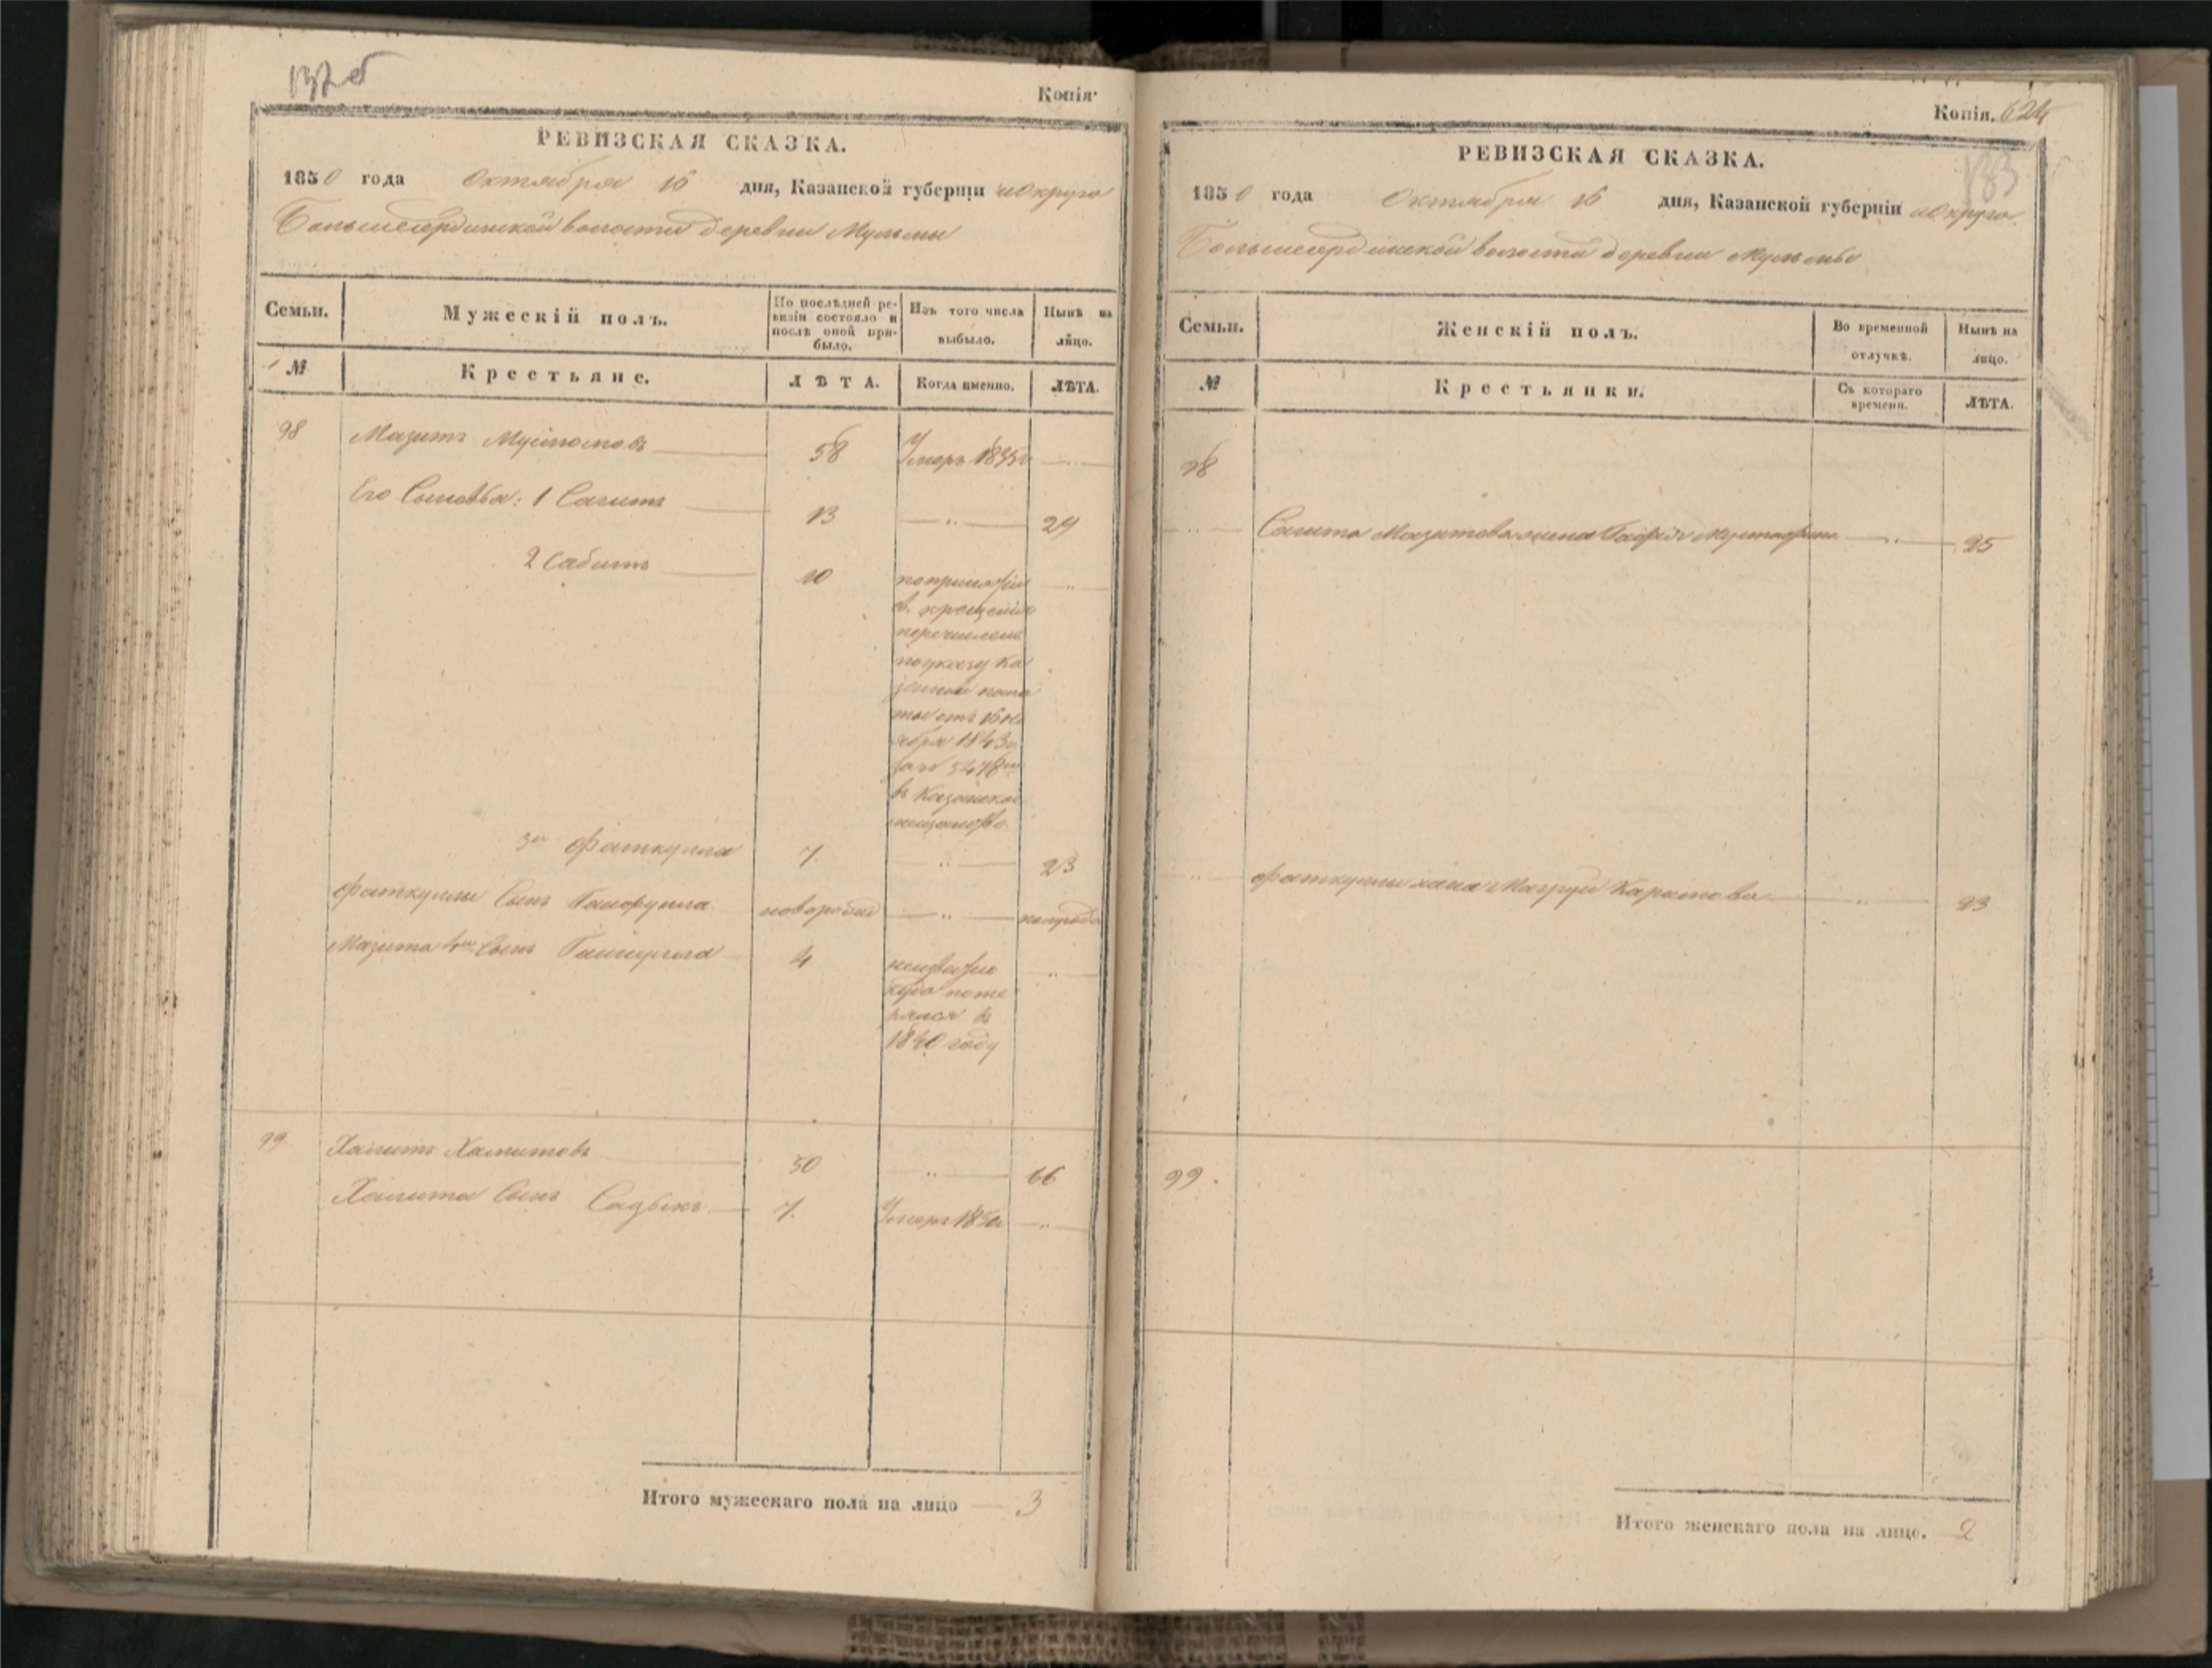 137 об
Копія
РЕВИЗСКАЯ СКАЗКА.
1850 года Октября 16 дня, Казанской губерніи и округа
Большесердинской волости деревни Мульмы
Семьи.
Мужескій полъ.
По послѣдней ревизіи состояло и послѣ оной прибыло.
Изъ того числа выбыло.
Нынѣ на лицо.
№
Крестьяне.
ЛѢТА.
Когда именно.
ЛѢТА.
98 Мазитъ 58 Умеръ 1835г
Его Сыновья: 1 Сагитъ 13 — „ — 29
2 Сабитъ 10 попринятіи
св. крещенія
перечисленъ
поуказу Ка
зенной пала
ты отъ 16 Но
ября 1843г
за № 5478мъ
въ Казанское
мещанство
3й Фаткулла 7. — „ — 23
Фаткуллы Сынъ новорожд — „ — полгода
Мазита 4й Сынъ 4 неизвѣстно
куда поте
рялся въ
1840 году
99. Халитъ Хамитовъ 50 — „ — 66
Халита Сынъ Садыкъ 7. Умеръ 1850г — „ —
Итого мужескаго пола на лицо — 3
Копія. 624
183
РЕВИЗСКАЯ СКАЗКА.
1850 года Октября 16 дня, Казанской губерніи и округа
Большесердинской волости деревни Мульмы
Семьи.
Женскій полъ.
Во временной отлучкѣ.
Нынѣ на лицо.
№
Крестьянки.
Съ котораго времени.
ЛѢТА.
98
— „ — Сагита Мазитова жена Мустафина — „ — 25
— „ — Фаткуллы жена Каримова — „ — 23
99.
Итого женскаго пола на лицо. 2